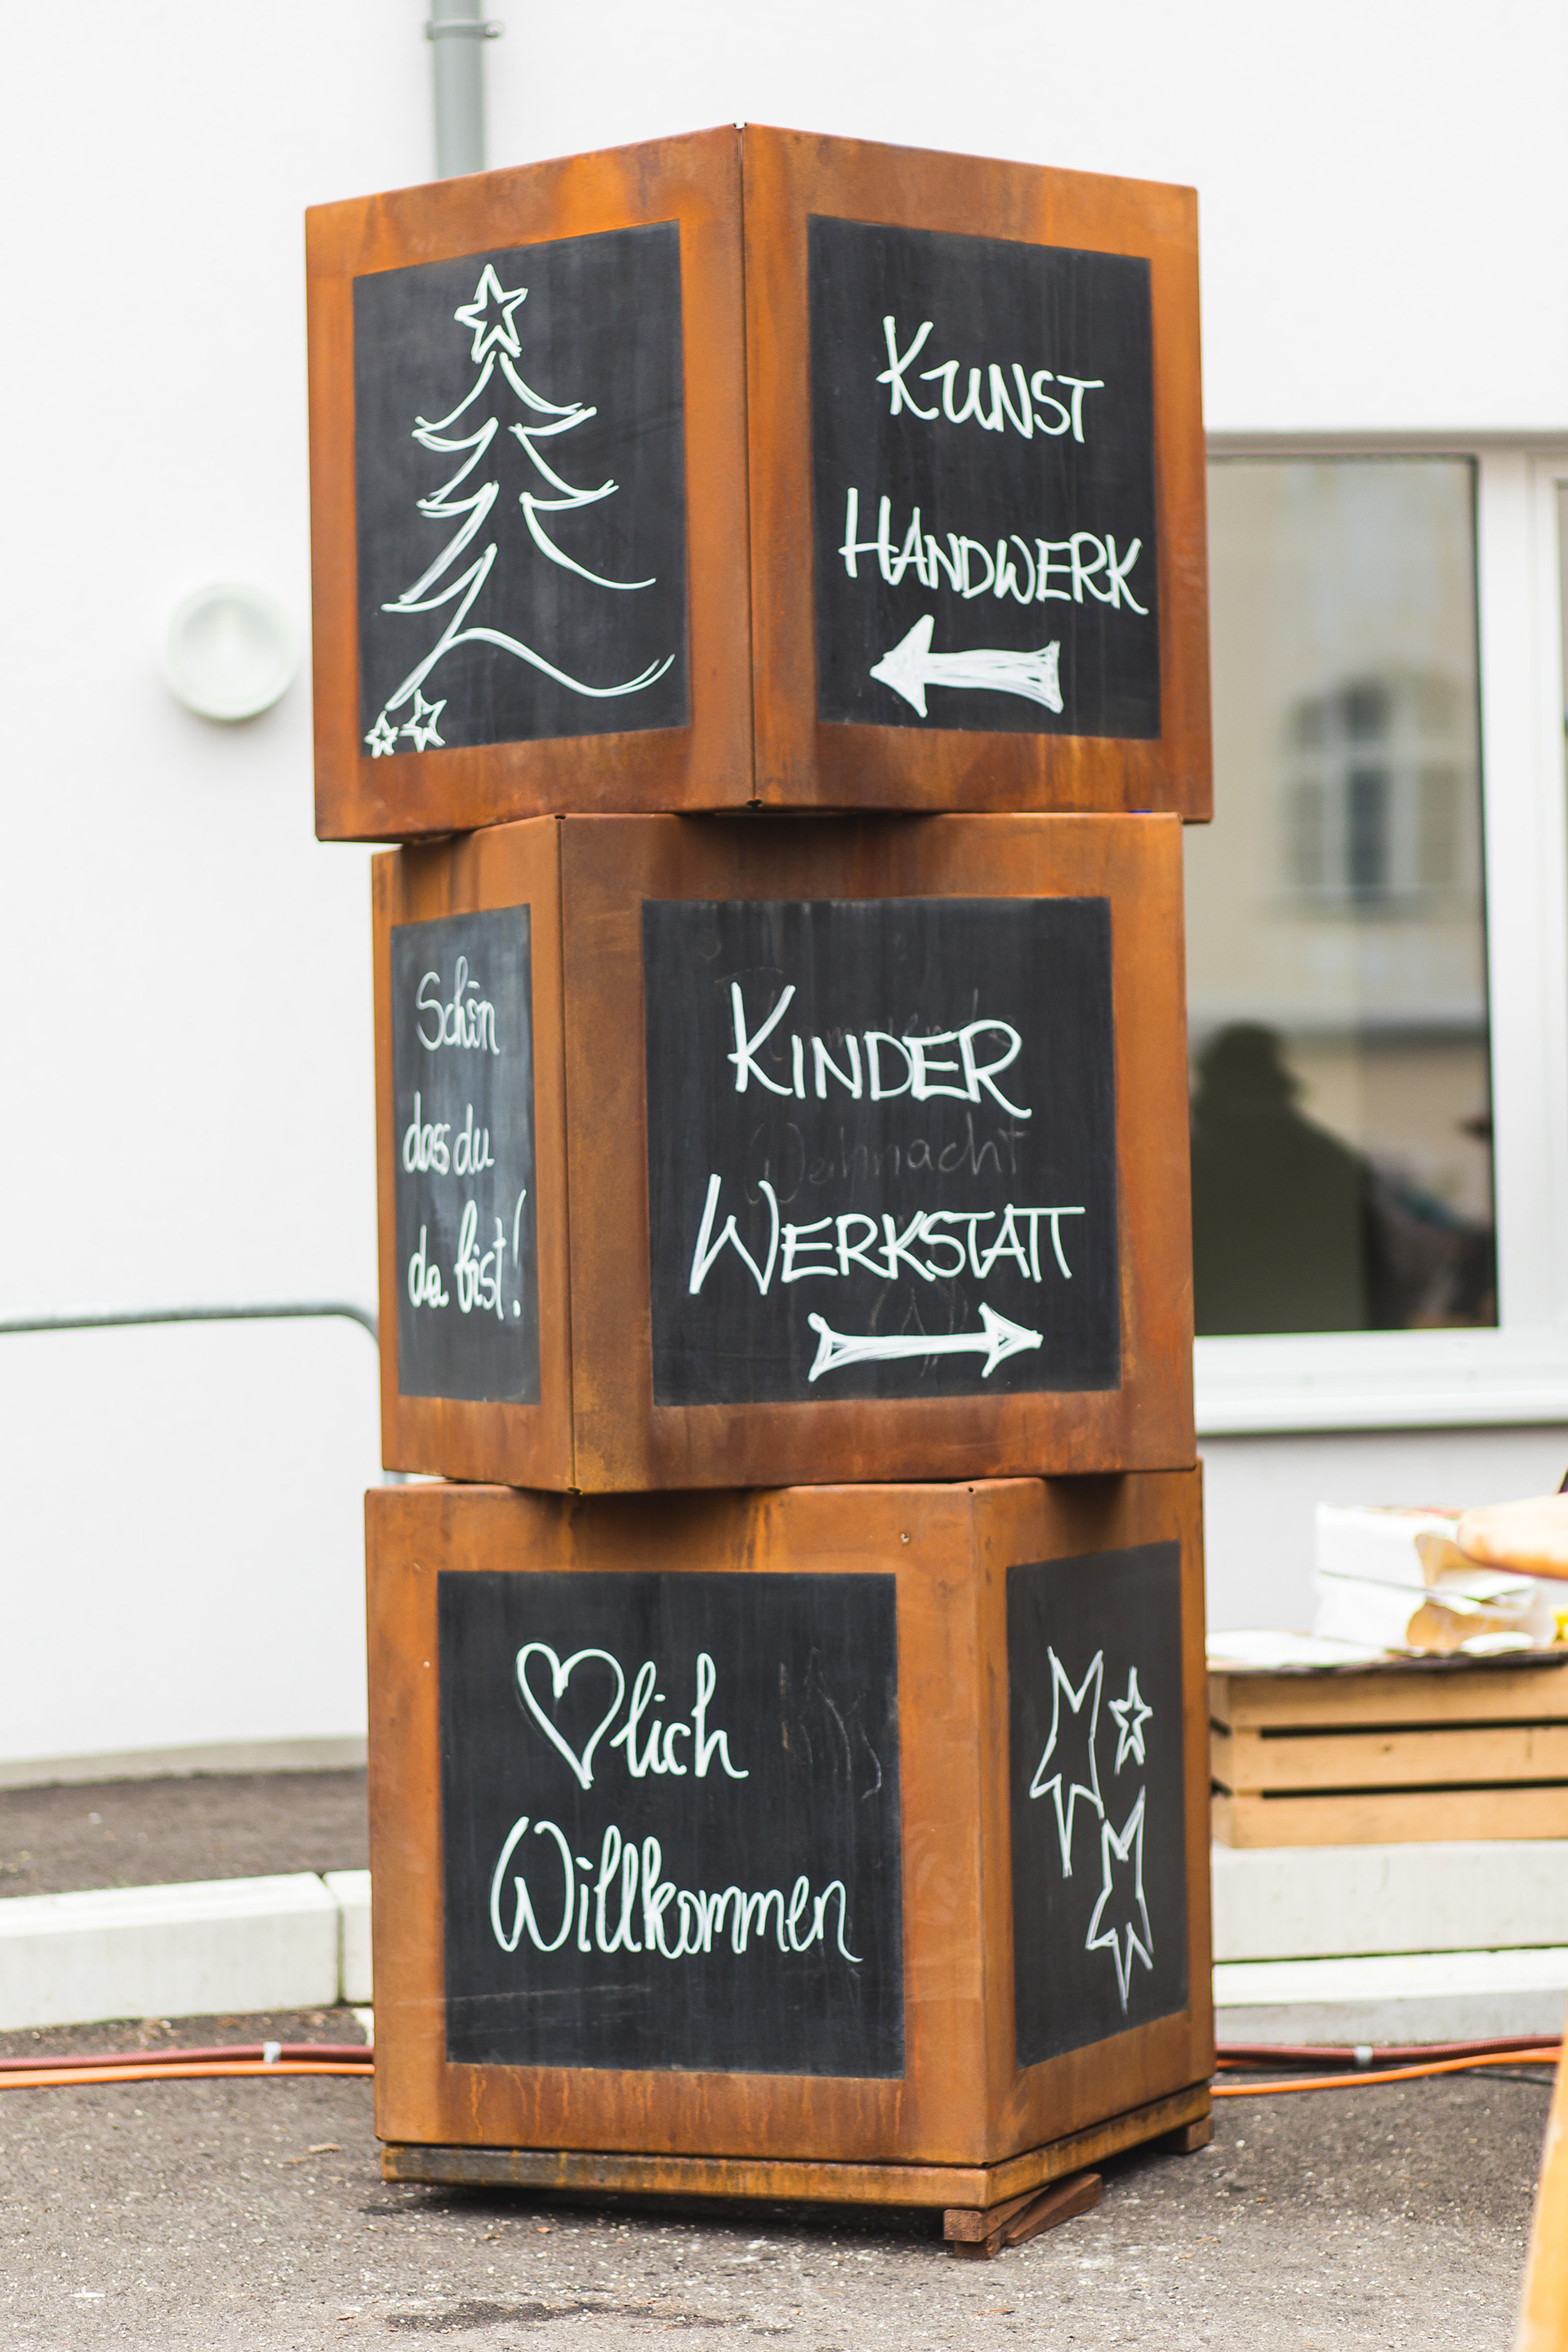 KUNST
HANDWERK
Schön
dass du
da bist!
KINDER
Weihnacht
WERKSTATT
♡lich
Willkommen